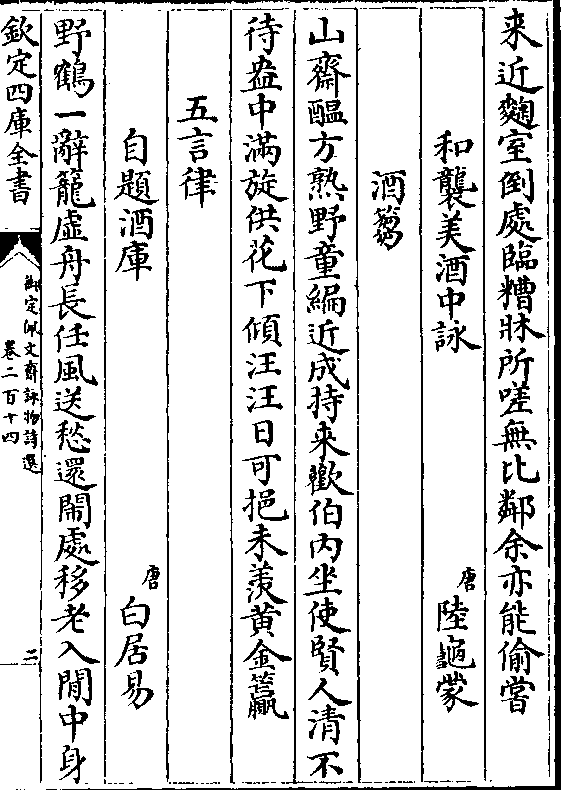 来近麴室倒處臨糟牀所嗟無比鄰余亦能偷嘗
和襲美酒中詠 唐 陸龜蒙
酒篘
山齋醞方熟野童編近成持来歡伯內坐使賢人清不
待盎中滿旋供花下傾汪汪日可挹未羡黄金籯
五言律
自題酒庫 唐 白居易
野鶴一辭籠虛舟長任風送愁還鬧處移老入閒中身
欽定四庫全書
御定佩文齋詠物詩選
卷二百十四
二